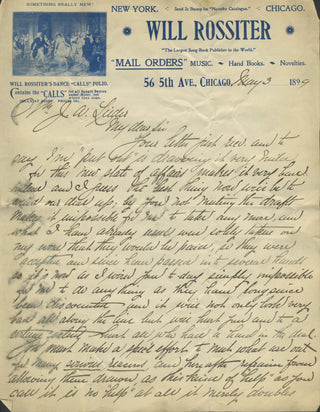 SOMETHING REALLY NEW!
NEW YORK. Send 2c Stamp for "Novelty Catalogue." CHICAGO.
WILL ROSSITER
"The Largest Song Book Publisher in the World."
"MAIL ORDERS" MUSIC. Hand Books. Novelties.
WILL ROSSITER'S DANCE "CALLS" FOLIO.
Contains the "CALLS"
56 5TH AVE., CHICAGO, May 3 1899
J. A.
My dear sir
Your letter just rec and to
say I'm "put out" is drawing it very mild
this new state of affairs makes it very
and I guess the best thing now will be to
you not meeting the drafts
makes it impossible for me to take any more, and
what I have already used were only taken on
my word that they would be paid, as they were
accepted and since have passed into several hands
so it's not as I now simply impossible
for me to do anything as they have long since
been discounted and it will not only look very
bad all along the line but will hurt you and to a
certain extent hurt all who have a hand in the deal.
You must make a special effort to meet what are out
for many serious reasons and hereafter refrain from
allowing them drawn as this kind of "help" as you
call it is no "help" at all it merely doubles